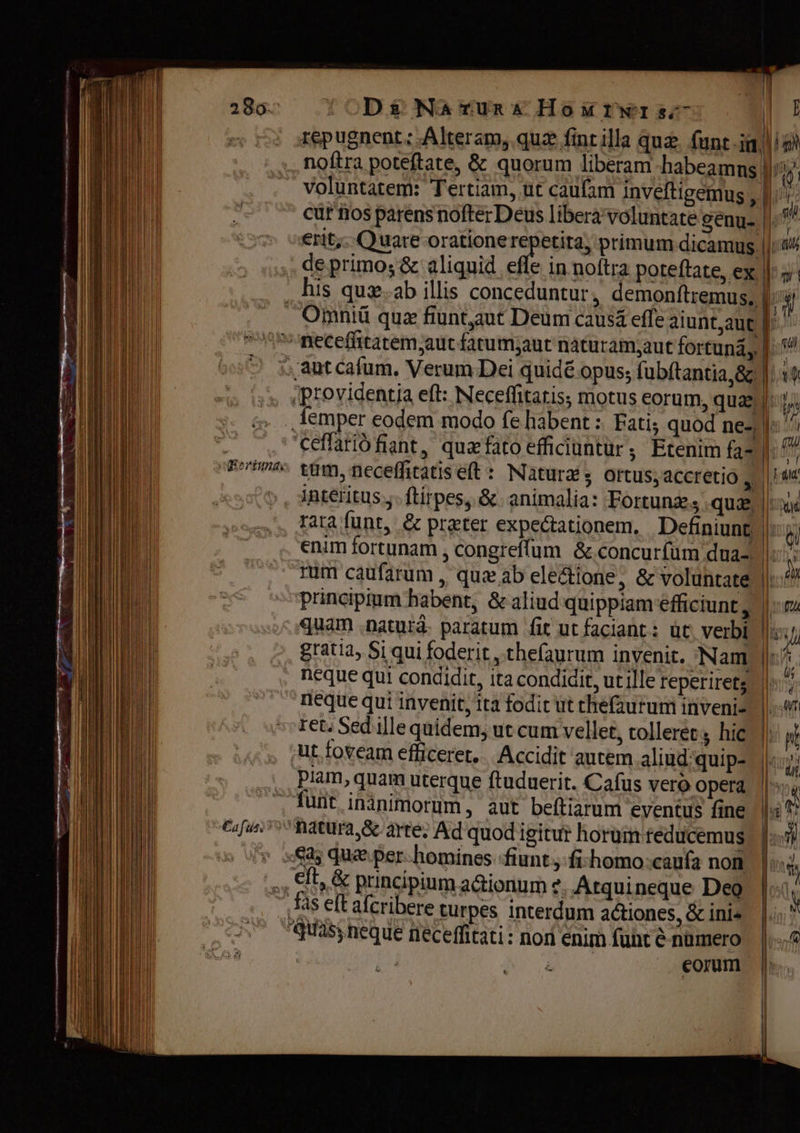 280 DE NATURA HOMINIS.
repugnent: Alteram, quæ ſint illa quæ ſunt in
noſtra poteſtate, & quorum liberam habeamus
voluntatem: Tertiam, ut cauſam inveſtigemus,
cur nos parens noſter Deus libera voluntate genu-
erit. Quare oratione repetita, primum dicamus
de primo; & aliquid eſſe in noſtra poteſtate, ex
his quæ ab illis conceduntur, demonſtremus.
Omniũ quæ fiunt, aut Deum causâ eſſe aiunt, aut
neceſſitatem, aut fatum, aut naturam, aut fortunã,
aut caſum. Verum Dei quidẽ opus, ſubſtantia, &
providentia eſt: Neceſſitatis, motus eorum, quæ
ſemper eodem modo ſe habent: Fati, quod ne-
ceſſariò fiant, quæ fato efficiuntur; Etenim fa-
Fortuna. tum, neceſſitatis eſt: Naturæ, ortus, accretio,
interitus, ſtirpes, & animalia: Fortunæ, quæ
rara ſunt, & præter expectationem. Definiunt
enim fortunam, congreſſum & concurſum dua-
rum cauſarum, quæ ab electione, & voluntate
principium habent, & aliud quippiam efficiunt,
quam naturâ paratum ſit ut faciant: ut verbi
gratia, Si qui foderit, theſaurum invenit. Nam
neque qui condidit, ita condidit, ut ille reperiret;
neque qui invenit, ita fodit ut theſaurum inveni-
ret. Sed ille quidem, ut cum vellet, tolleret; hic
ut foveam efficeret. Accidit autem aliud quip-
piam, quam uterque ſtuduerit. Caſus verò opera
ſunt inanimorum, aut beſtiarum eventus ſine
Caſus. natura, & arte. Ad quod igitur horum reducemus
ea, quæ per homines fiunt, ſi homo cauſa non
eſt, & principium actionum? Atqui neque Deo
fas eſt aſcribere turpes interdum actiones, & ini-
quas, neque neceſſitati: non enim ſunt è numero
eorum